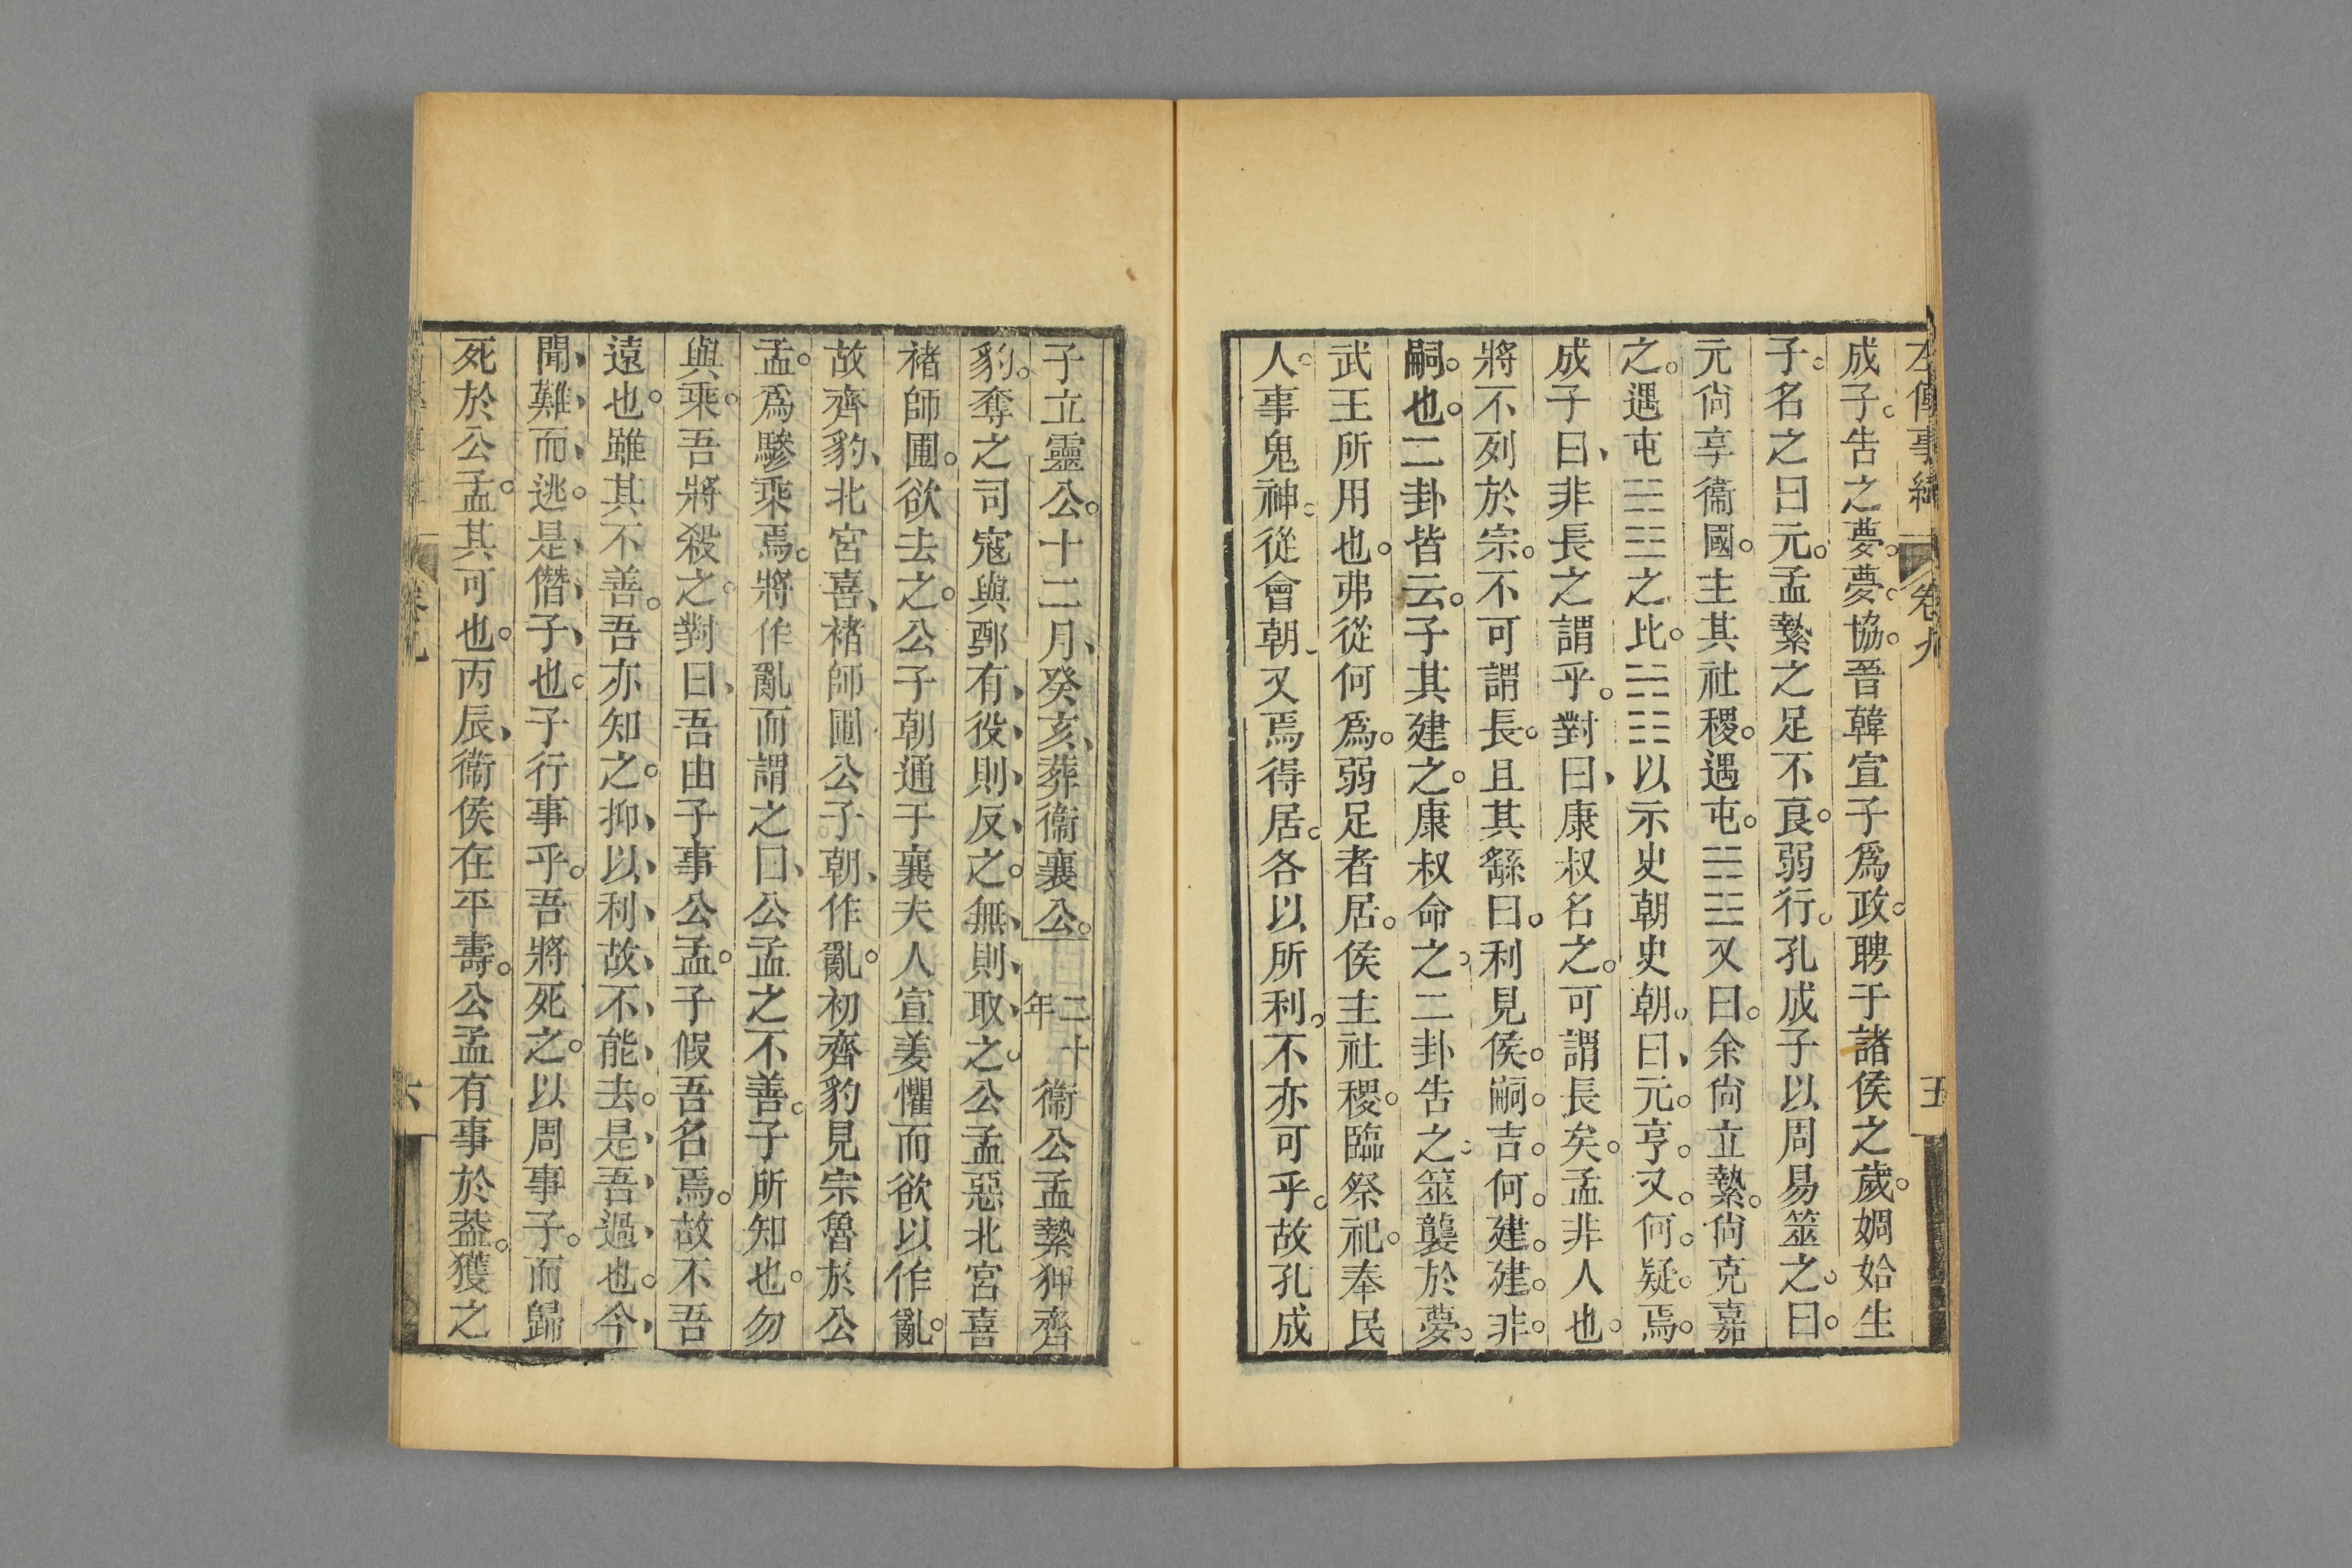 左傳事緯 卷九 五
成子。告之夢。夢。協。晉韓宣子爲政。聘于諸侯之歲。婤姶生
子。名之曰元。孟縶之足不良。弱行。孔成子以周易筮之。曰。
元尙享衞國。主其社稷。遇屯。䷂又曰。余尙立縶。尙克嘉
之。遇屯䷂之比。䷇以示史朝史朝。曰、元。亨。又。何。疑。焉。
成子曰、非長之謂乎。對曰、康叔名之。可謂長矣。孟非人也。
將不列於宗。不可謂長。且其繇曰。利見侯。嗣。吉。何。建。建。非。
嗣。也。二卦皆云。子其建之。康叔命之。二卦告之。筮襲於夢。
武王所用也。弗從何爲。弱足者居。侯主社稷。臨祭祀。奉民
人。事鬼神。從會朝、又焉得居。各以所利。不亦可乎。故孔成
子立靈公。十二月、癸亥、葬衞襄公。二十年 衞公孟縶狎齊
豹。奪之司寇與鄄有、役、則、反、之。無、則、取、之。公孟惡北宮喜
褚師圃。欲去之。公子朝通于襄夫人宣姜懼而欲以作亂。
故齊豹、北宮喜、褚師圃公子朝、作亂。初齊豹見宗魯於公
孟。爲驂乘焉。將作亂而謂之曰、公孟之不善。子所知也。勿
與乘。吾將殺之。對曰、吾由子事公孟。子假吾名焉。故不吾
遠也。雖其不善。吾亦知之。抑、以、利、故、不、能、去。是、吾、過、也。今、
聞、難、而、逃。是、僭、子、也。子行事乎。吾將死之。以周事子。而歸
死於公孟。其可也。丙辰、衞侯在平壽。公孟有事於蓋。獲之
卷九 六